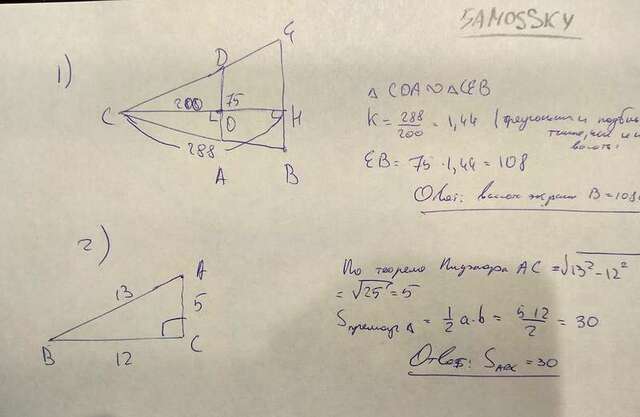 SAMOSSKY
1)
D
G
C
200
75
O
H
288
A
B
△ CDA ∾ △CEB
K = 288/200 = 1,44 (треугольники подобны
также, как и их
высоты
EB = 75 · 1,44 = 108
Ответ: высота экрана B = 108
2)
A
13
5
B
12
C
По теореме Пифагора AC = √13² - 12²
= √25 = 5
Sпрямоуг △ = 1/2 a·b = 5·12/2 = 30
Ответ: SABC = 30